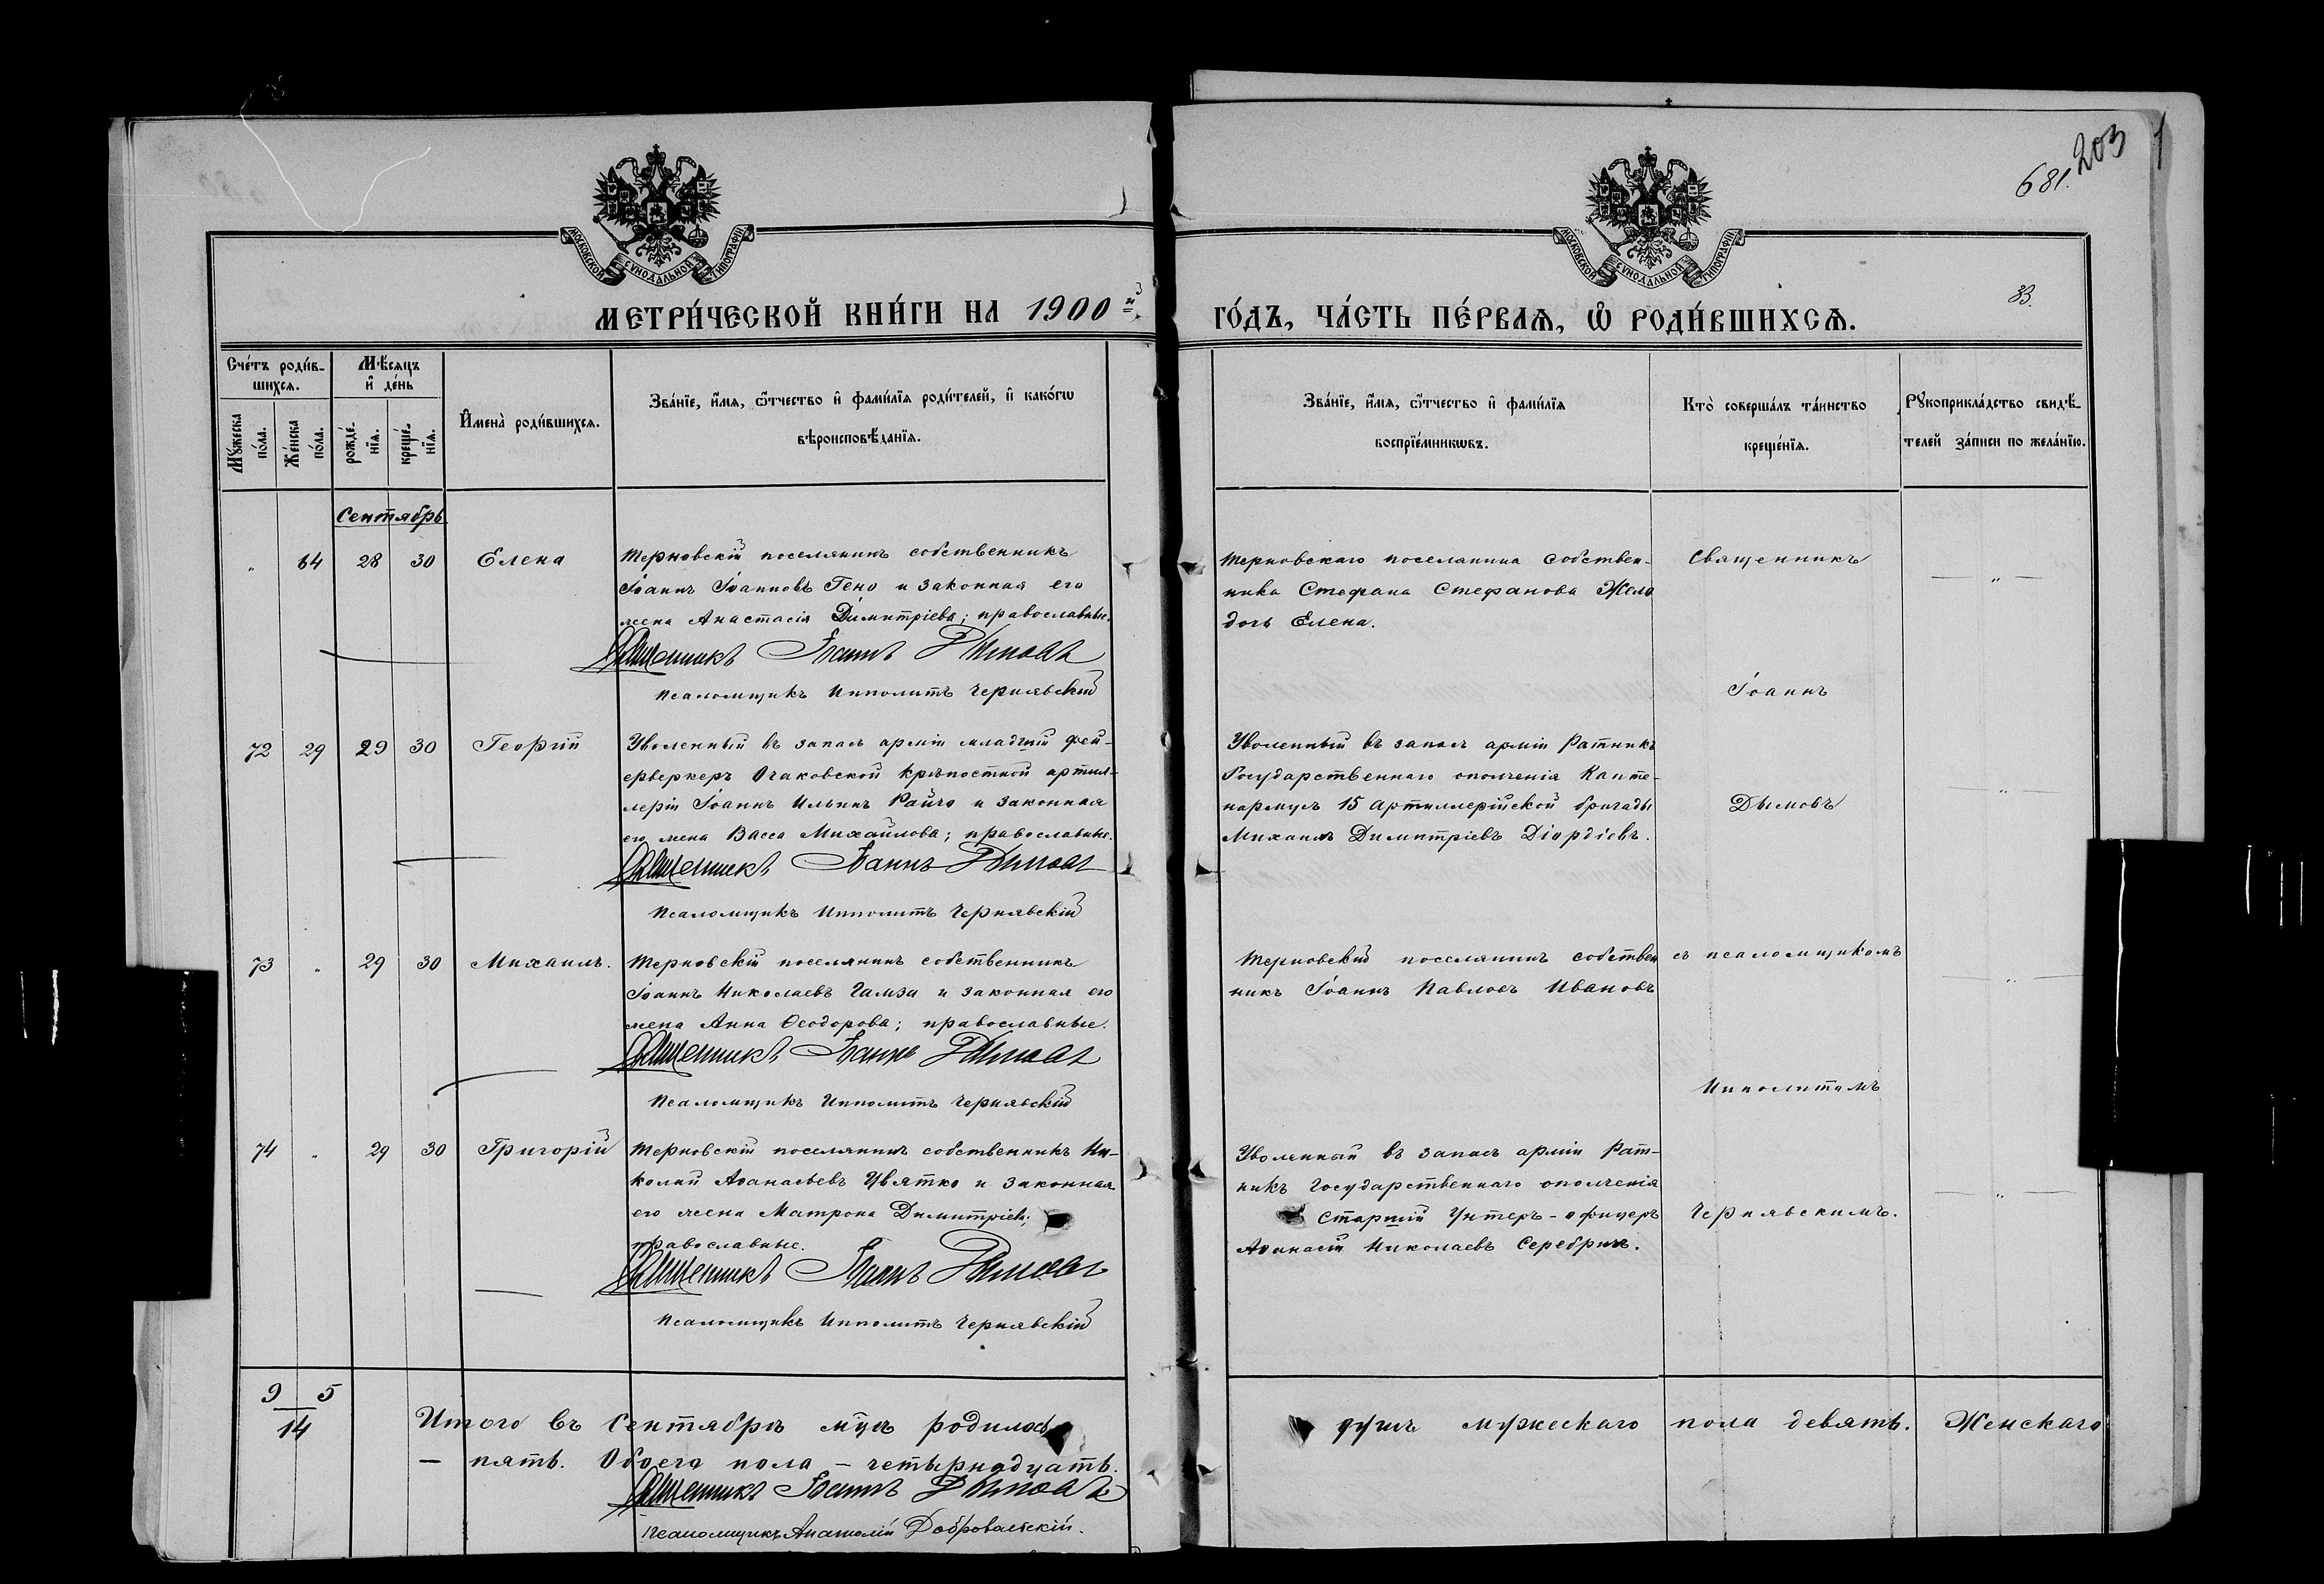 681. 203
МОСКОВСКОЙ СѴНОДАЛЬНОЙ ТИПОГРАФІИ
МОСКОВСКОЙ СѴНОДАЛЬНОЙ ТИПОГРАФІИ
МЕТРИ́ЧЕСКОЙ КНИ́ГИ НА 1900 й
ГО́ДЪ, ЧА́СТЬ ПЕ́РВАѦ, Ѡ РОДИ́ВШИХСѦ.
Сче́тъ роди́в-
шихсѧ.
Мѣ́сѧцъ
и де́нь
Мꙋ́жеска
по́ла.
Же́нска
по́ла.
рожде́-
нїѧ.
креще́-
нїѧ.
Имена̀ роди́вшихсѧ.
Зва́нїе, и́мѧ, ѻ́тчество и фами́лїѧ роди́телей, и како́гѡ
вѣроисповѣ́данїѧ.
Зва́нїе, и́мѧ, ѻ́тчество и фами́лїѧ
воспрїе́мникѡвъ.
Кто̀ соверша́лъ та́инство
креще́нїѧ.
Рꙋкоприкла́дство свидѣ́-
телей за́писи по жела́нїю.
Сентябрь
" 64 28 30 Елена
Терновскій поселянинъ собственникъ
Іоаннъ Іоанновъ Гено и законная его
жена Анастасія Димитріева; православные.
Священникъ Іоаннъ Дымовъ
Псаломщикъ Ипполитъ Чернявскій
Терновскаго поселянина собствен-
ника Стефана Стефанова Жело
дочь Елена.
Священникъ
Іоаннъ
72 29 29 30 Георгій
Уволенный въ запасъ арміи младшій фей-
ерверкеръ Очаковской крѣпостной артил-
леріи Іоаннъ Ильинъ Райчо и законная
его жена Васса Михайлова; православные.
Священникъ Іоаннъ Дымовъ
Псаломщикъ Ипполитъ Чернявскій
Уволенный въ запасъ арміи Ратникъ
Государственнаго ополченія Капте-
нармусъ 15 Артиллерійской бригады
Михаилъ Димитріевъ Діордіевъ.
Дымовъ
73 " 29 30 Михаилъ.
Терновскій поселянинъ собственникъ
Іоаннъ Николаевъ Гамза и законная его
жена Анна Ѳеодорова; православные.
Священникъ Іоаннъ Дымовъ
Псаломщикъ Ипполитъ Чернявскій
Терновскій поселянинъ собствен
никъ Іоаннъ Павловъ Ивановъ
съ псаломщикомъ
Ипполитомъ
74 " 29 30 Григорій
Терновскій поселянинъ собственникъ Ни-
колай Аѳанасьевъ Цвятко и законная
его жена Матрона Димитріев;
православные.
Священникъ Іоаннъ Дымовъ
Псаломщикъ Ипполитъ Чернявскій
Уволенный въ запасъ арміи Рат-
никъ Государственнаго ополченія
Старшій Унтеръ-офицеръ
Аѳанасій Николаевъ Серебрич.
Чернявскимъ.
9 5
14
Итого въ Сентябрѣ мцѣ родилось душъ мужескаго пола девять. Женскаго
— пять. Обоего пола — четырнадцать.
Священникъ Іоаннъ Дымовъ
Псаломщикъ Анатолій Добровольскій.